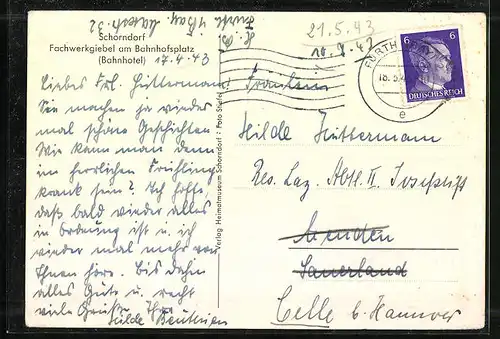 Schorndorf
Fachwerkgiebel am Bahnhofsplatz
(Bahnhotel) 17.4.43
Liebes Frl. Hüttermann!
Sie machen ja wieder
mal schöne Geschichten
Wie kann man denn
im herrlichen Frühling
krank sein? Ich hoffe,
daß bald wieder alles
in Ordnung ist u. ich
wieder mal mehr von
Ihnen höre. Bis dahin
alles Gute u. recht
viele Grüße Ihre
Hilde
Verlag Heimatmuseum Schorndorf : Foto
21.5.43
FÜRTH
18.5.
e
6 6
DEUTSCHES REICH
Fräulein
Hilde Hüttermann
Res. Laz. Abtl. II
Menden
Sauerland
Celle b. Hannover